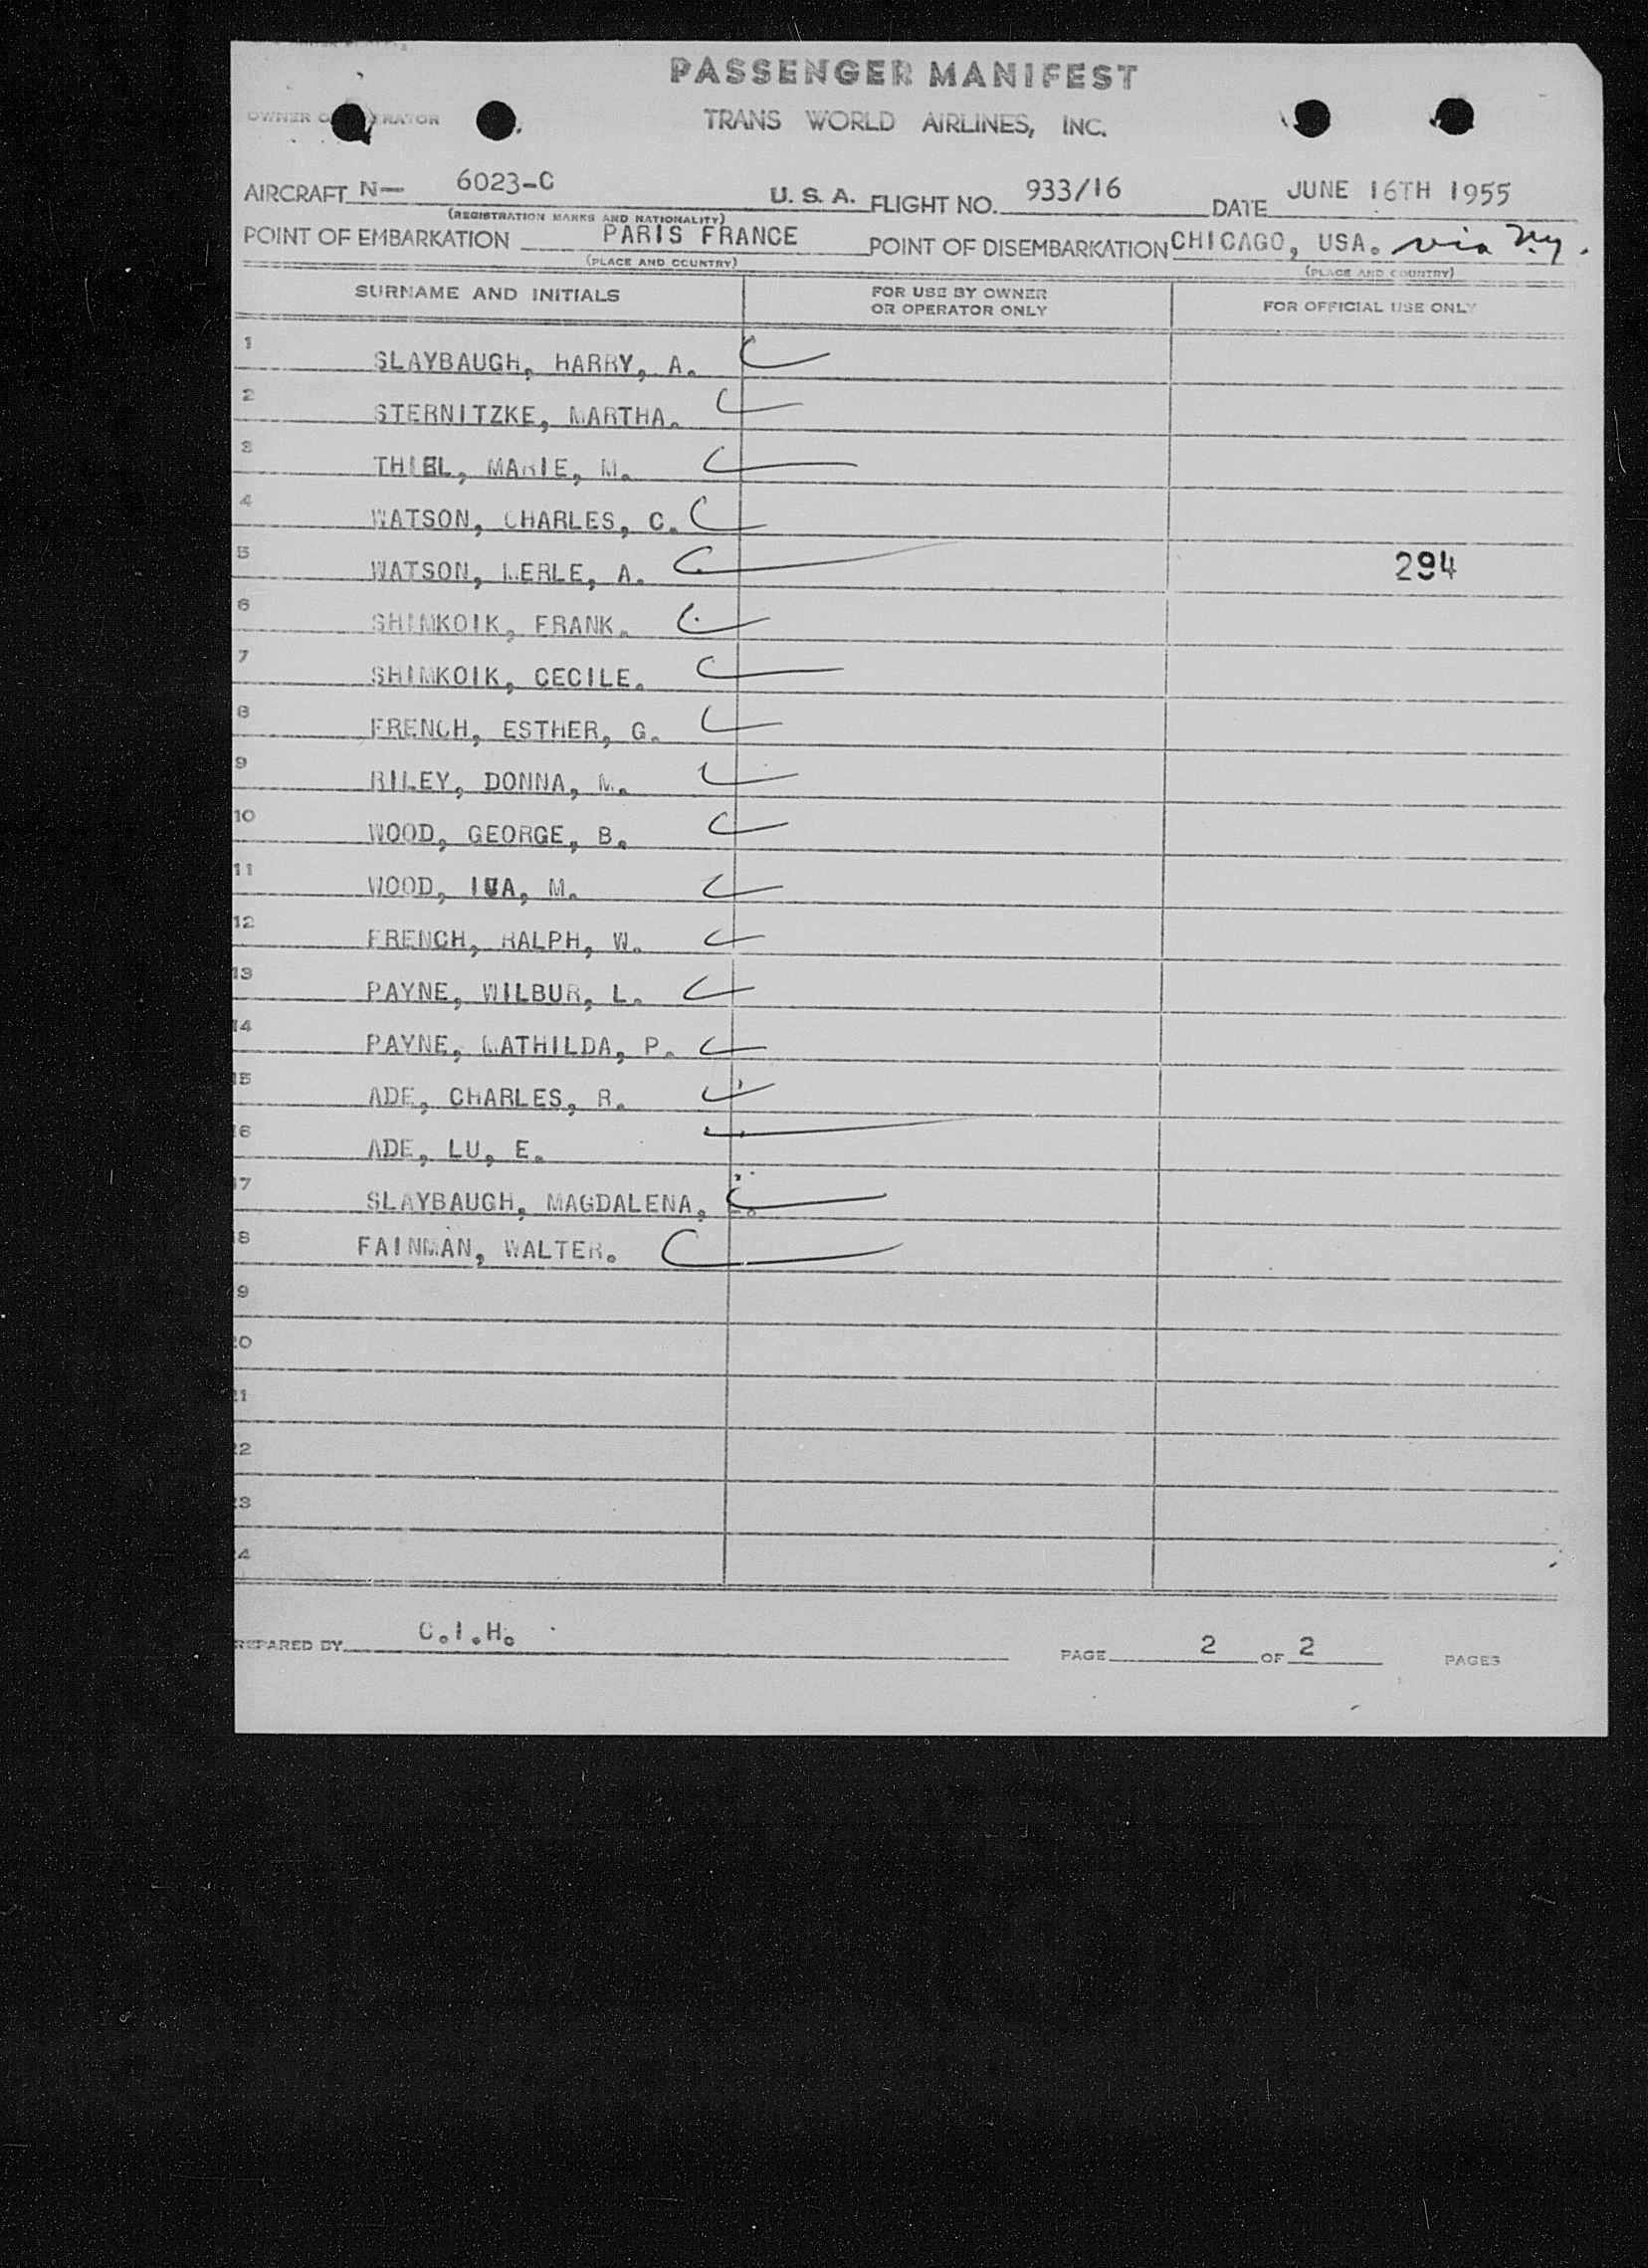 PASSENGER MANIFEST
OWNER O RATOR
TRANS WORLD AIRLINES, INC.
AIRCRAFT N— 6023-C U. S. A. FLIGHT NO. 933/16 DATE JUNE 16TH 1955
(REGISTRATION MARKS AND NATIONALITY)
POINT OF EMBARKATION PARIS FRANCE POINT OF DISEMBARKATION CHICAGO, USA. via N.y.
(PLACE AND COUNTRY) (PLACE AND COUNTRY)
SURNAME AND INITIALS FOR USE BY OWNER OR OPERATOR ONLY FOR OFFICIAL USE ONLY
1 SLAYBAUGH, HARRY, A.
2 STERNITZKE, MARTHA.
3 THIEL, MARIE, M.
4 WATSON, CHARLES, C.
5 WATSON, MERLE, A. 294
6 SHIMKOIK, FRANK.
7 SHIMKOIK, CECILE.
8 FRENCH, ESTHER, G.
9 RILEY, DONNA, M.
10 WOOD, GEORGE, B.
11 WOOD, M.
12 FRENCH, RALPH, W.
13 PAYNE, WILBUR, L.
14 PAYNE, MATHILDA, P.
15 ADE, CHARLES, R.
16 ADE, LU, E.
17 SLAYBAUGH, MAGDALENA,
18 FAINMAN, WALTER.
9
20
21
22
23
4
REPARED BY C.I.H. PAGE 2 OF 2 PAGES